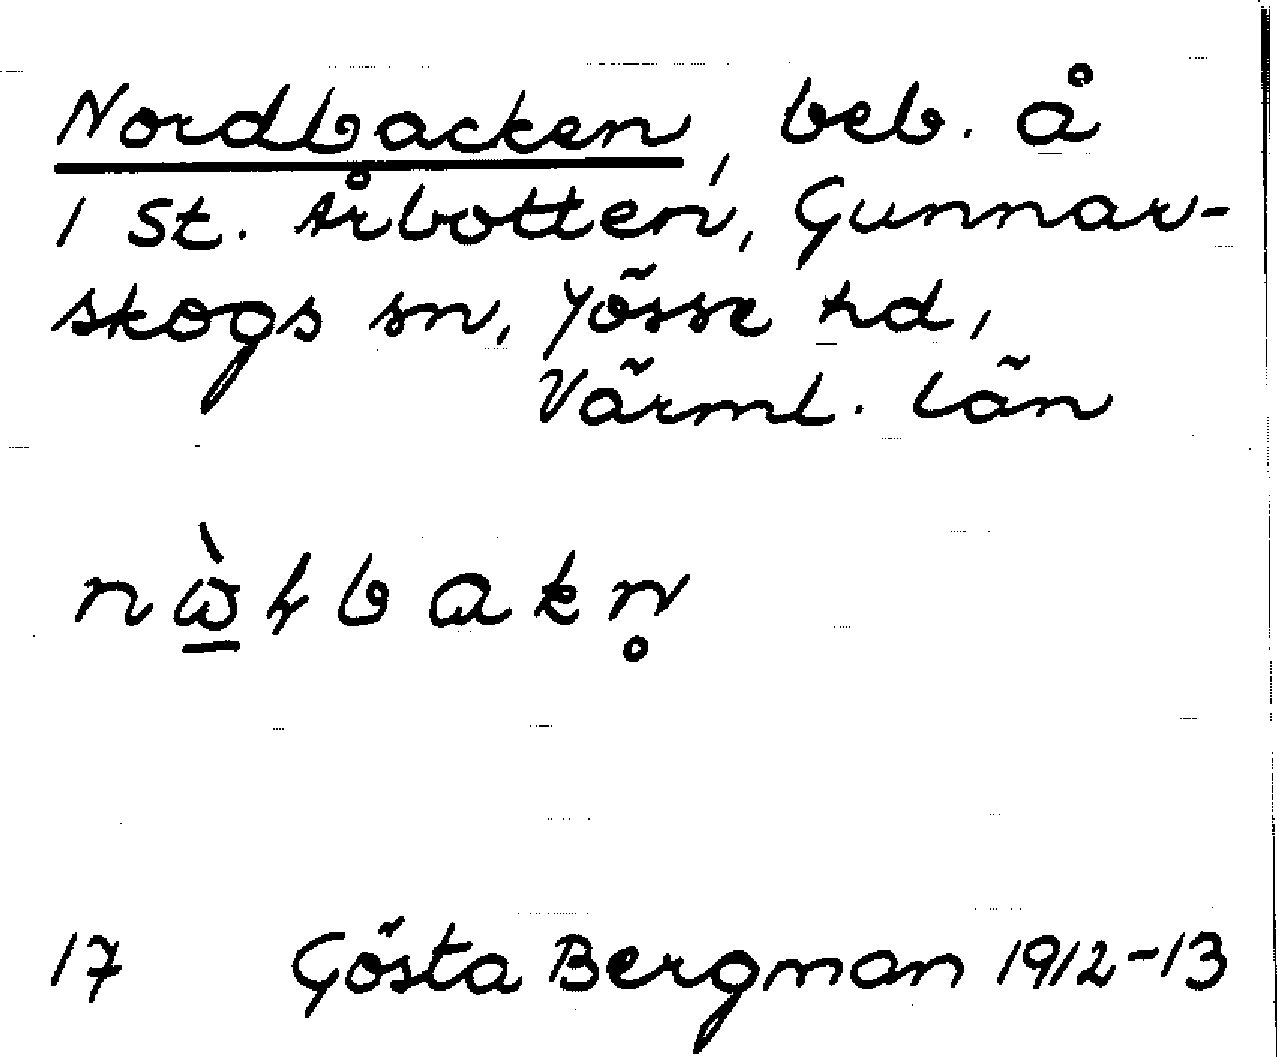 Nordbacken, beb. å
1 St. Årbotten, Gunnar-
skogs sn, Jösse hd,
Värml. län
17 Gösta Bergman 1912-13